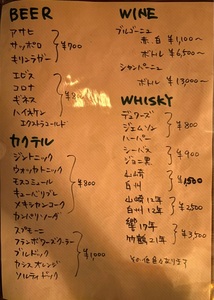 BEER
アサヒ
サッポロ
キリンラガー
¥700
エビス
コロナ
ギネス
ハイネケン
エクストラコールド
¥8
カクテル
ジントニック
ウォッカトニック
モスコミュール
キューバリブレ
メキシカンコーク
カンパリソーダ
¥800
スプモーニ
テランポワーズクーラー
ブルドック
カシスオレンジ
ソルティドック
¥1000
WINE
ブルゴーニュ
赤 白 ¥1,100〜
ボトル ¥6,500〜
シャンパーニュ
ボトル ¥13,000〜
WHISKY
デュワーズ
ジェムソン
ハーパー
¥800
シーバス
ジョニ黒
¥900
山崎
白州
¥1500
山崎12年
白州12年
¥2500
響17年
竹鶴21年
¥3500
その他色々あります